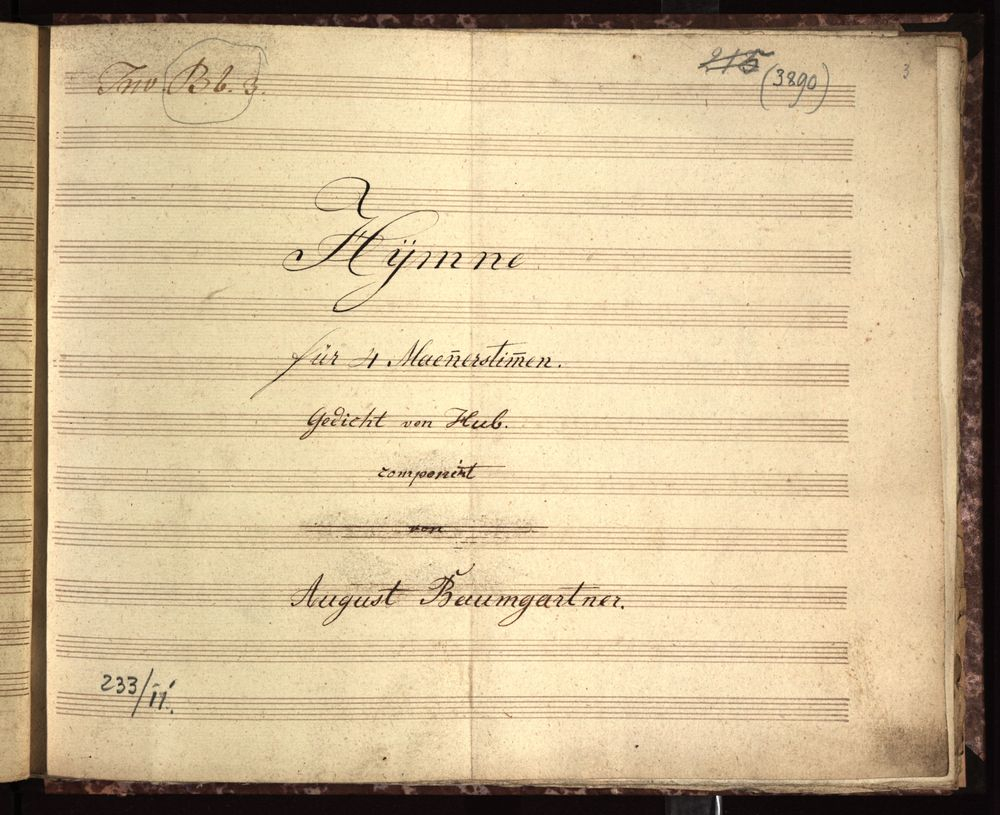 Inv. Bb. 3.
215 (3890)
3
Hÿmne
für 4 Maen̄erstim̄en.
Gedicht von Hub.
componirt
von
August Baumgartner.
233/II.